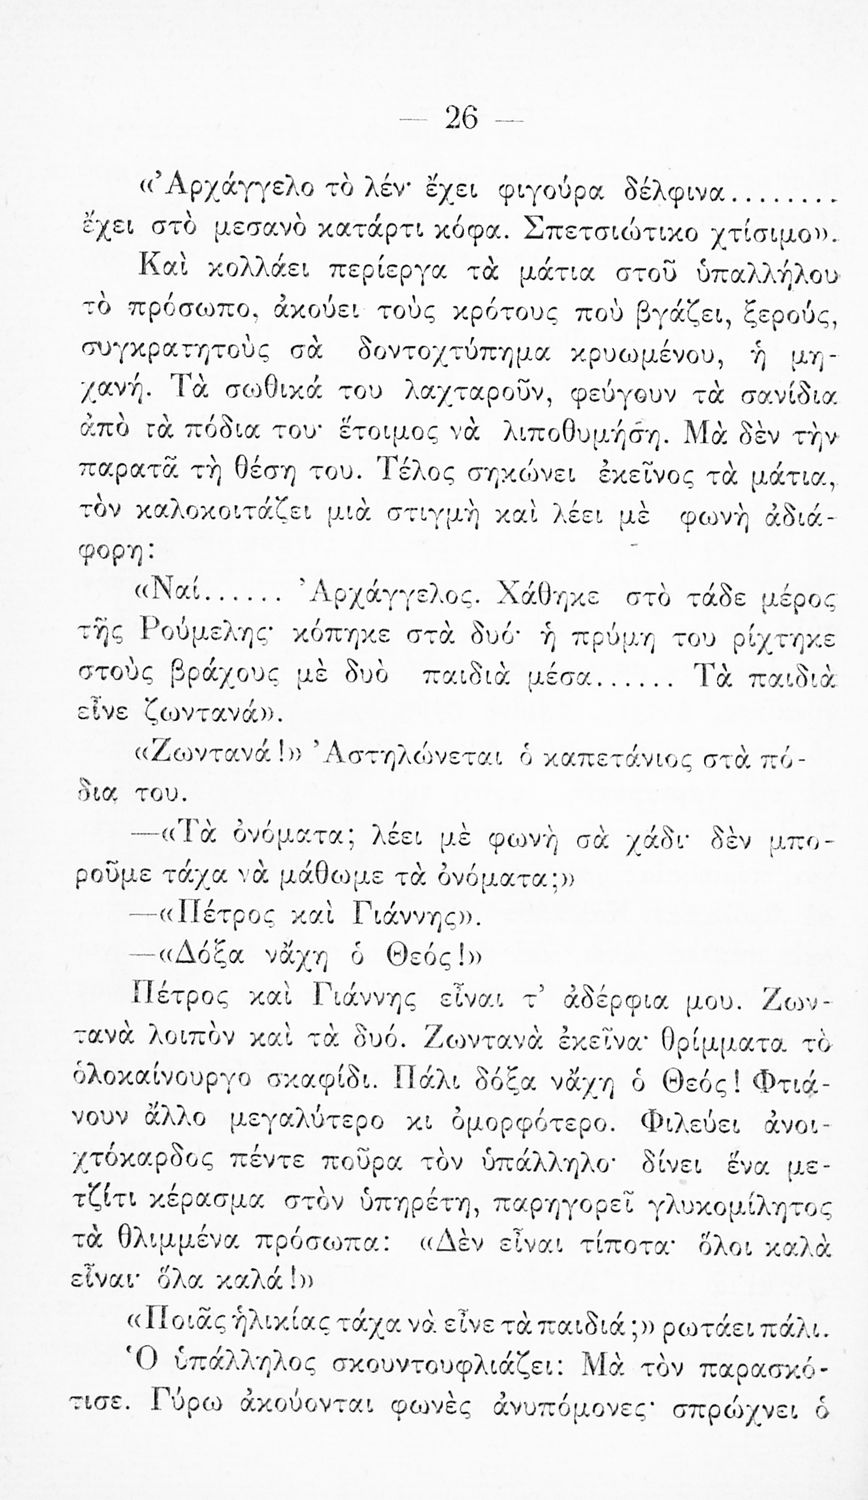 — 26 —
«Ἀρχάγγελο τὸ λέν· ἔχει φιγούρα δέλφινα........
ἔχει στὸ μεσανὸ κατάρτι κόφα. Σπετσιώτικο χτίσιμο».
Καὶ κολλάει περίεργα τὰ μάτια στοῦ ὑπαλλήλου
τὸ πρόσωπο, ἀκούει τοὺς κρότους ποὺ βγάζει, ξερούς,
συγκρατητοὺς σὰ δοντοχτύπημα κρυωμένου, ἡ μη-
χανή. Τὰ σωθικά του λαχταροῦν, φεύγουν τὰ σανίδια
ἀπὸ τὰ πόδια του· ἕτοιμος νὰ λιποθυμήσῃ. Μὰ δὲν τὴν
παρατᾶ τὴ θέση του. Τέλος σηκώνει ἐκεῖνος τὰ μάτια,
τὸν καλοκοιτάζει μιὰ στιγμὴ καὶ λέει μὲ φωνὴ ἀδιά-
φορη:
«Ναί...... Ἀρχάγγελος. Χάθηκε στὸ τάδε μέρος
τῆς Ρούμελης· κόπηκε στὰ δυό· ἡ πρύμη του ρίχτηκε
στοὺς βράχους μὲ δυὸ παιδιὰ μέσα...... Τὰ παιδιὰ
εἶνε ζωντανά».
«Ζωντανά!» Ἀστηλώνεται ὁ καπετάνιος στὰ πό-
δια του.
—«Τὰ ὀνόματα; λέει μὲ φωνὴ σὰ χάδι· δὲν μπο-
ροῦμε τάχα νὰ μάθωμε τὰ ὀνόματα;»
—«Πέτρος καὶ Γιάννης».
—«Δόξα νἄχη ὁ Θεός!»
Πέτρος καὶ Γιάννης εἶναι τ’ ἀδέρφια μου. Ζων-
τανὰ λοιπὸν καὶ τὰ δυό. Ζωντανὰ ἐκεῖνα· θρίμματα τὸ
ὁλοκαίνουργο σκαφίδι. Πάλι δόξα νἄχη ὁ Θεός! Φτιά-
νουν ἄλλο μεγαλύτερο κι ὀμορφότερο. Φιλεύει ἀνοι-
χτόκαρδος πέντε ποῦρα τὸν ὑπάλληλο· δίνει ἕνα με-
τζίτι κέρασμα στὸν ὑπηρέτη, παρηγορεῖ γλυκομίλητος
τὰ θλιμμένα πρόσωπα: «Δὲν εἶναι τίποτα· ὅλοι καλὰ
εἶναι· ὅλα καλά!»
«Ποιᾶς ἡλικίας τάχα νὰ εἶνε τὰ παιδιά;» ρωτάει πάλι.
Ὁ ὑπάλληλος σκουντουφλιάζει: Μὰ τὸν παρασκό-
τισε. Γύρω ἀκούονται φωνὲς ἀνυπόμονες· σπρώχνει ὁ